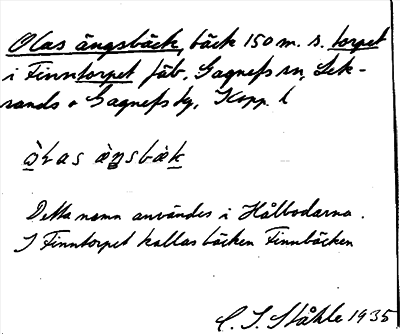 Olas ängsbäck, bäck 150 m. s. torpet
i Finntorpet fäb. Gagnefs sn, Lek-
sands o Gagnefs tg, Kopp. l
òɫas æ̀ŋsbæk
Detta namn användes i Hålbodarna.
I Finntorpet kallas bäcken Finnbäcken
C. I. Ståhle 1935